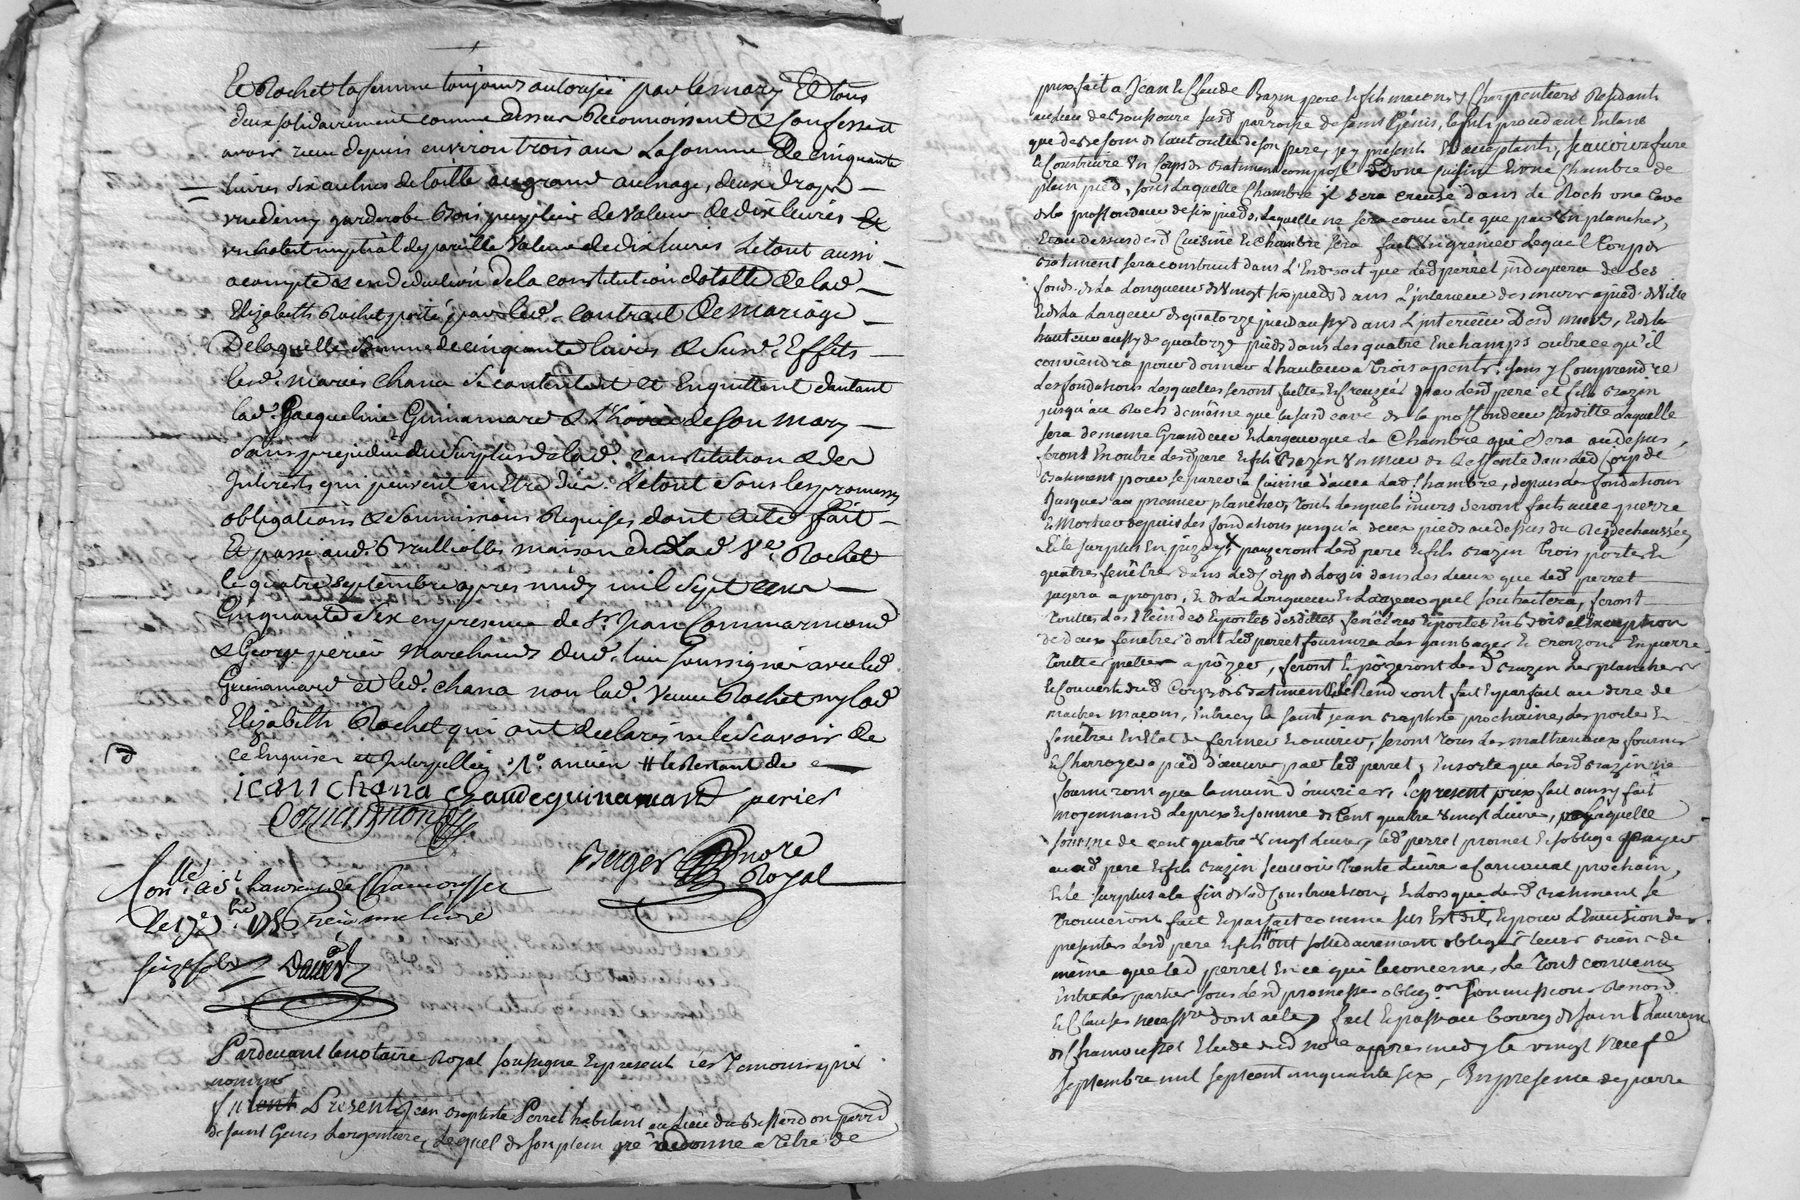 Et Rochet sa femme toujours autorisée par le mary Et tous
deux solidairement comme dessus Reconnoissent & Confessent
avoir receu depuis environ trois ans La somme De cinquante
Livres six aulnes de toille au grand aulnage, deux draps
une demy garderobe bois peuplier de valeur de dix livres Et
un habit nuptial de pareille valeur de dix livres Le tout aussi
acompte & en deduction de la constitution dotalle de lad.
Elizabeth Rochet porté par led. contrat De mariage
De laquelle somme de cinquante livres & susd. Effets
lesd. mariés chana se contentent et En quittent d'autant
lad. Jacqueline Guinamard & l'hoirie de son mary
Sans prejudice du surplus de lad. constitution & des
Interests qui peuvent en Etre dûs. Le tout sous les promesses
obligations & soumissions Requises, dont acte fait
Et passé aud. maison de Lad. Ve. Rochet
le quatre septembre apres midy mil sept cent
Cinquante Six en presence de Sr. Jean Commarmond
& George périer Marchands dud. lieu soussignés avec led.
Guinamard et led. chana non lad. Veuve Rochet ny lad.
Elizabeth Rochet qui ont declarés ne le sçavoir De
ce Enquises et Interpellées
jean chana claude guinamant perier
Commarmond
Berger Nore
Royal
Con.llé a St. Laurent de Chamousset
Le 17e 7bre 1756 Reçu une livre
seize sols Daveyt
Pardevant le notaire Royal soussigné Et present Les Temoins cy après
nommés
fut Present Jean Baptiste Perret habitant au Lieu du parr.
de saint Genis Largentiere, Lequel de son plein gré a donné a titre de
prix fait a Jean & Claude Bazin pere & fils macons & Charpentiers Residants
au Lieu de susd. parroisse de saint Génis, le fils procedant Enlans
que de besoin de l'autorité de son pere, icy présents & acceptants, scavoir en faire
& Construire Un Corps de Batiment composé D'une Cuisine & une Chambre de
plein pied, sous Laquelle Chambre il sera creusé dans le Roch une Cave
de la proffondeur de six pieds, Laquelle ne sera couverte que par Un plancher,
Et au dessus desd. Cuisine & chambre sera fait Un grenier Lequel Corps de
Batiment sera construit dans L'Endroit que led. perret indiquera de ses
fonds de La Longueur de Vingt six pieds dans L'interieur des murs a pied de Ville
Et de La Largeur de quatorze pieds aussy dans L'interieur Desd. murs, Et de la
hauteur aussy de quatorze pieds dans les quatre Enchamps outre ce qu'il
conviendra pour donner L'hauteur a trois apents, sans y Comprendre
Les fondations Lesquelles seront faites & Creusées par Lesd. pere et fils Bazin
jusqu'au Roch de même que la susd. cave de la proffondeur susditte Laquelle
sera de meme Grandeur & Largeur que La Chambre qui Sera au dessus,
feront En outre Lesd. pere & fils Bazin Un mur de Reffente dans Led. Corps de
Batiment pour separer la Cuisine d'avec Lad. Chambre, depuis Les fondations
Jusques au premier plancher, Tous Lesquels murs seront faits avec pierre
& Mortier depuis Les fondations jusqu'a deux pieds au dessus du Rez de chaussée,
Et le surplus En pizay, poseront Lesd. pere & fils Bazin Trois portes &
quatres fenêtres dans Led. Corps de Logis dans Les Lieux que Led. perret
jugera a propos, & de La Longueur & Largeur quel souhaitera, feront
Toutes Les Pleindes & portes desdittes fenêtres & portes En Bois a L'exception
de deux fenêtres dont Led. perret fournira Les jambages & Croizons En pierre
Toutte prettes a pôzer, feront & pôzeront Lesd. Bazin Les planchers
& Couverts dud. Corps de Batiment & Le Rendront fait & parfait au dire de
maitres maçons, Entre cy la saint jean Baptiste prochaine, Les portes &
fenêtres En Etat de fermer & ouvrir, seront Tous Les mattereaux fournis
& Charroyes a pied d'oeuvre par led. perret, Ensorte que Lesd. Bazin ne
fourniront que la main d'ouvrier, Le present prix fait ainsy fait
moyennand Le prix & somme de Cent quatre Vingt Livres, Laquelle
somme de cent quatre vingt Livres, led. perret promet & s'oblige payer
auxd. pere & fils Bazin scavoir Trente Livre a Carnaval prochain,
& Le surplus a la fin de lad. Construction, & Lorsque Lesd. Batiment se
Trouveront fait & parfait comme sus Est dit, & pour L'Execution des
presentes Lesd. pere & fils ont solidairement obliges Leurs biens de
même que led. perret En ce qui Le concerne, Le Tout convenu
Entre Les parties sous Lesd. promesses oblig.ons soumissions Renon.
& Clauses necess.res dont acte, fait & passé au bourg de saint Laurent
de Chamousset Etude dud. nore. apprès midy le vingt Neuf
septembre mil septcent cinquante six, En presence de pierre